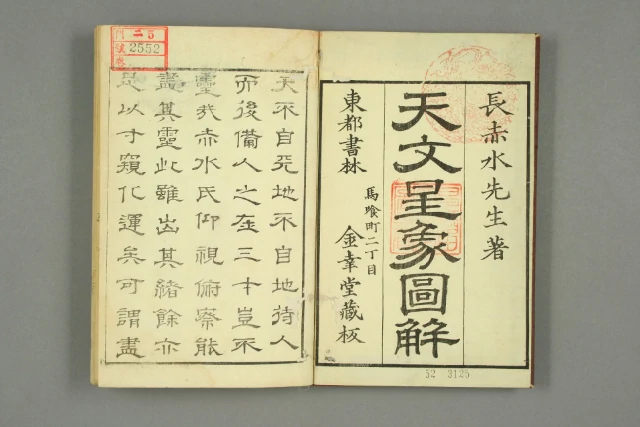 長赤水先生著
天文星象圖解
東都書林
馬喰町二丁目
金幸堂藏板
天不自天地不自地待人
而後備人之在三才豈不
靈哉赤水氏仰視俯察能
盡其靈此雖出其緒餘亦
足以寸窺化運矣可謂盡
二5
門
號
2552
52 3125